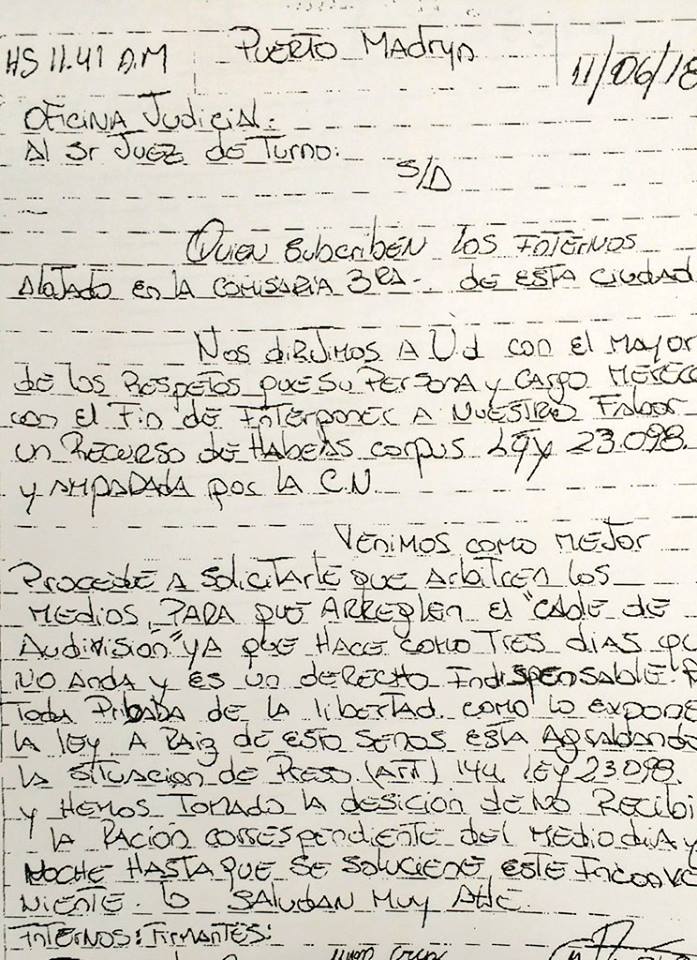 HS 11.41 A.M
PUERTO MADRYN
11/06/18
OFICINA JUDICIAL:
Al Sr JUEZ de TURNO:
S/D
QUIEN SUBSCRIBEN LOS INTERNOS
ALOJADO en LA COMISARIA 3RA-. de ESTA CIUDAD
NOS DIRIJIMOS A Ud con el MAYOR
de los RESPETOS que SU PERSONA y CARGO MERECE
con el FIN de INTERPONER A NUESTRO FABOR
un RECURSO de HABEAS corpus Ley 23.098.
y AMPARADA por LA C.N
VENIMOS como MEJOR
PROCEDE A SOLICITARLE que ARBITREN los
MEDIOS, PARA que ARREGLEN el "CABLE de
AUDIVISIÓN" YA que HACE como TRES DIAS qu
NO ANDA y ES un DERECHO INDISPENSABLE. P
TODA PRIBADA de LA libertad. como lo EXPONE
LA ley. A RAIZ de ESTO SENOS ESTÁ AGRABANDO
LA SITUACION de PRESO (ART) 144. LEY 23098.
y HEMOS TOMADO LA DESICION de NO RECIBI
LA RACIÓN correspondiente del MEDIO DIA y
NOCHE HASTA que SE SOLUCIENE ESTE INCONVE
NIENTE. lo SALUDAN MUY Atte.
INTERNOS: FIRMANTES: